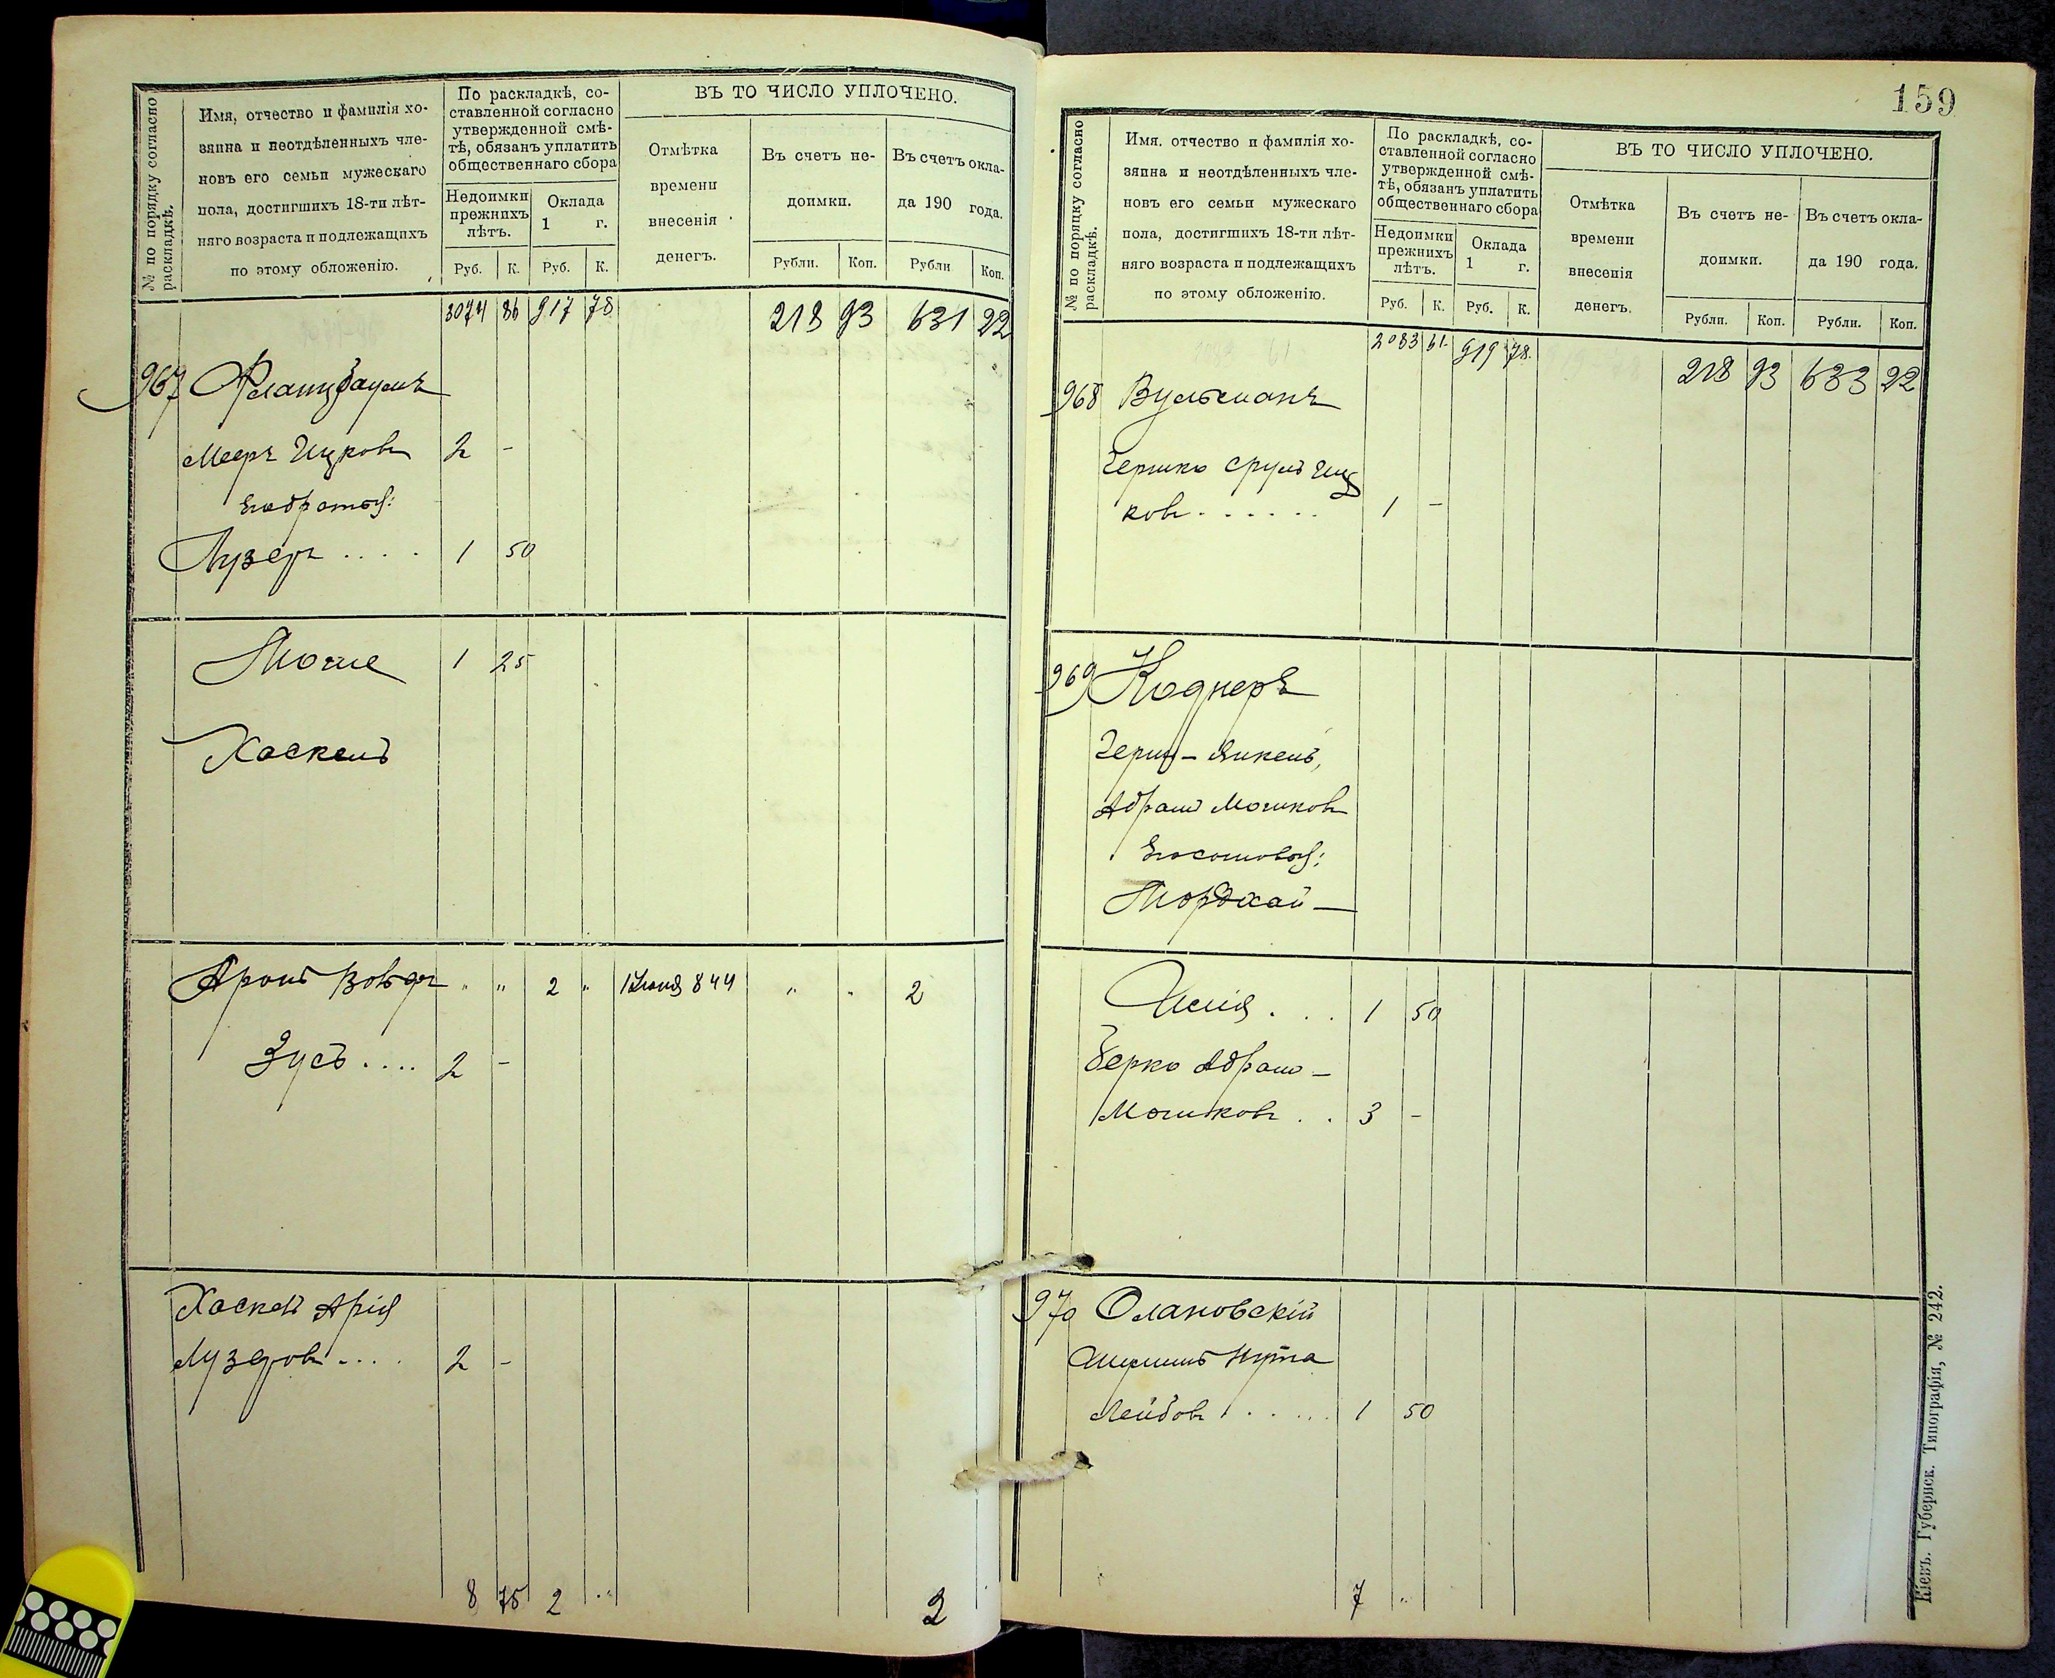 № по порядку согласно
раскладкѣ.
Имя, отчество и фамилія хо-
зяина и неотдѣленныхъ чле-
новъ его семьи мужескаго
пола, достигшихъ 18-ти лѣт-
няго возраста и подлежащихъ
по этому обложенію.
По раскладкѣ, со-
ставленной согласно
утвержденной смѣ-
тѣ, обязанъ уплатить
общественнаго сбора
Недоимки
прежнихъ
лѣтъ.
Оклада
1 г.
Руб. К. Руб. К.
ВЪ ТО ЧИСЛО УПЛОЧЕНО.
Отмѣтка
времени
внесенія
денегъ.
Въ счетъ не-
доимки.
Рубли. Коп.
Въ счетъ окла-
да 190 года.
Рубли Коп.
3074 86 917 78 218 93 631 22
967
Мееръ Ицковъ 2 -
Его братья:
Лузеръ .... 1 50
Моше 1 25
Хаскель
Аронъ Вольфъ " " 2 " 1 Іюня 844 " " 2
Зусь .... 2 -
Хаскель Арія
Лузеровъ .... 2 -
8 75 2 " 2
159
№ по порядку согласно
раскладкѣ.
Имя. отчество и фамилія хо-
зяина и неотдѣленныхъ чле-
новъ его семьи мужескаго
пола, достигшихъ 18-ти лѣт-
няго возраста и подлежащихъ
по этому обложенію.
По раскладкѣ, со-
ставленной согласно
утвержденной смѣ-
тѣ, обязанъ уплатить
общественнаго сбора
Недоимки
прежнихъ
лѣтъ.
Оклада
1 г.
Руб. К. Руб. К.
ВЪ ТО ЧИСЛО УПЛОЧЕНО.
Отмѣтка
времени
внесенія
денегъ.
Въ счетъ не-
доимки.
Рубли. Коп.
Въ счетъ окла-
да 190 года.
Рубли. Коп.
2083 61 919 78 218 93 633 22
968 Вульфманъ
Гершко Сруль Иц
ковъ ...... 1 -
969 Коднеръ
Герш-Янкель,
Абрам Мошков
Его сыновья:
Мордхай —
Шлій ... 1 50
Берко Абрам-
Мошковъ .. 3 -
970 Олановскій
Нута
Лейбовъ ..... 1 50
7 "
Кіевъ. Губернск. Типографія, № 242.